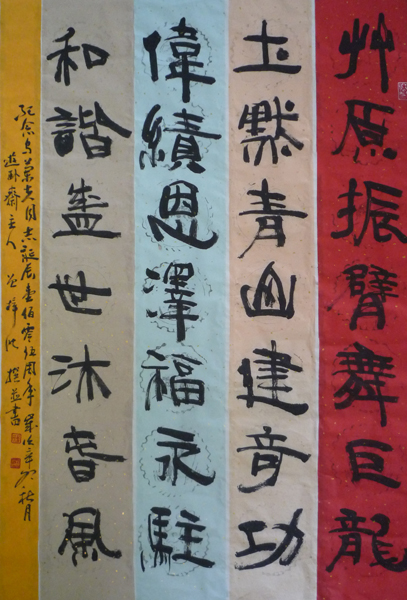 艸原振臂舞巨龍
土默青山建奇功
偉績恩澤福永駐
和諧盛世沐春風
紀念烏蘭夫同志誕辰壹佰零伍周年歲次辛卯秋月
齋主人 撰並書